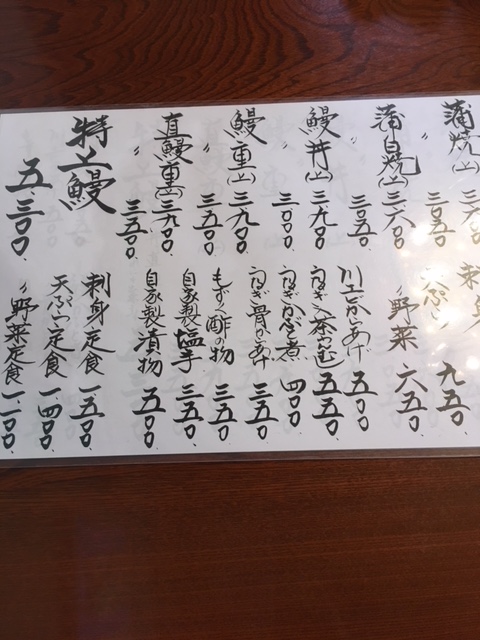 蒲焼(上) 三六
〃 三〇五〇
蒲白焼(上) 三六〇〇
〃 三〇五〇
鰻丼(上) 三、九〇〇
〃 三〇〇〇
鰻重(上) 三九〇〇
〃 三五〇〇
真鰻重(上) 三、九〇〇
〃 三五〇〇
特上鰻 五、三〇〇
刺身 九五〇
天ぷら
〃野菜 六五〇
川エビから揚げ 五〇〇
うなぎ茶わんむし 五五〇
うなぎかぶと煮 四〇〇
うなぎ骨からあげ 三五〇
もずく酢の物 三五〇
自家製塩辛 三五〇
自家製漬物 五〇〇
刺身定食 一五〇〇
天ぷら定食 一四〇〇
〃野菜定食 一一〇〇